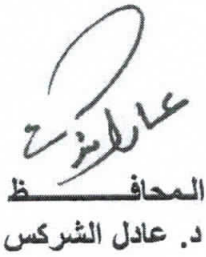 المحافــــــــظ
د. عادل الشركس